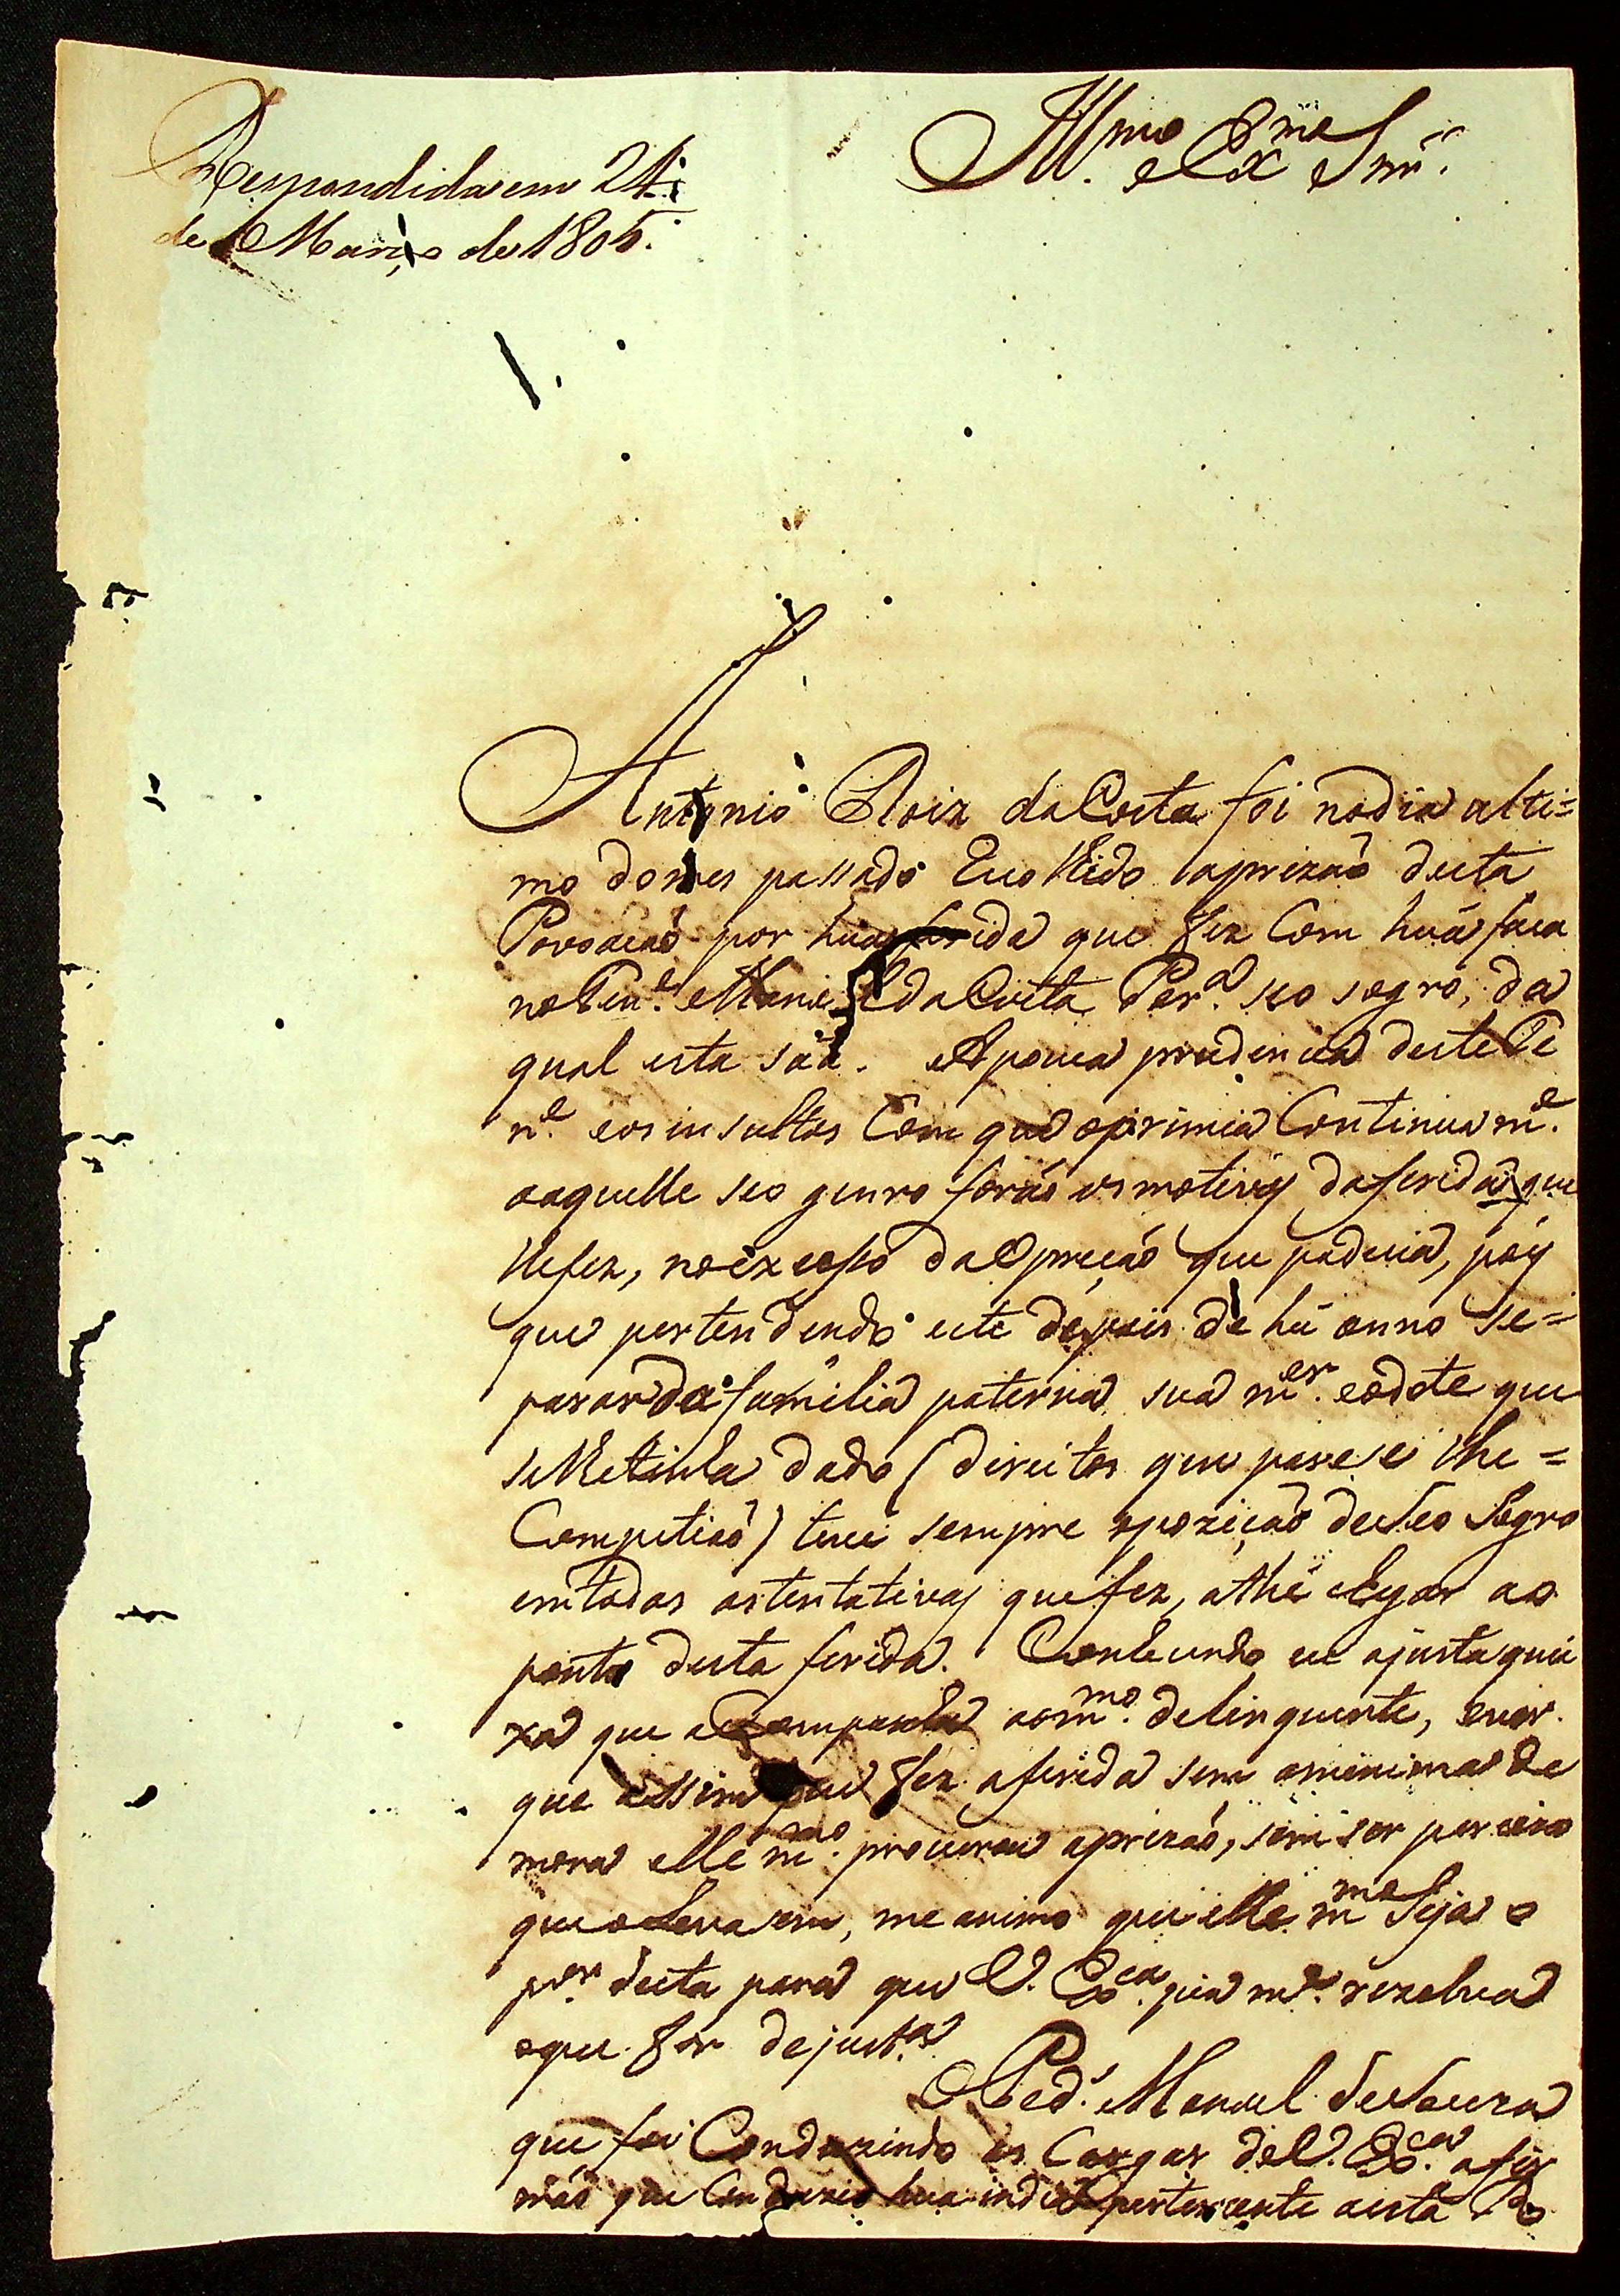 Respondida em 24
de Março de 1805.
Ill.mo e Ex.mo Snr.
Antonio Roiz da Costa foi no dia ulti=
mo do mes passado recolhido a prizaõ desta
Povoacaõ por hua ferida que fez Com huá faca
no Ten.e Manoel da Costa Per.a seo sogro, da
qual esta saã. A pouca prudencia deste Te
n.e e os insultos Com que oprimia Continuam.e
a aquelle seo genro foraõ os motivos da ferida que
lhe fez, no excesso da Opreçaõ que padecia, pois
que pertendendo este depois de hú anno se=
parar da familia paterna sua m.er e o dote que
se lhe tinha dado (direitos que parese lhe=
Competiaõ) teve sempre opoziçaõ de seo Sogro
em todas as tentativas que fez, athé chegar ao
ponto desta ferida. Conhecendo eu a justa quei
xa que acompanha ao m.mo delinquente, e ver
que assim que fez a ferida sem a minima de
mora elle m.mo procurou a prizaõ, sem ser percizo
que o levasem, me animo que elle m.mo Seja o
p.or desta para que V. Ex.ca pia m.e rezolva
o que for de just.a
O Ped. Manoel de Souza
que foi Conduzindo as Cargas de V. Ex.ca afir
maõ que Conduzio hua india pertencente a esta Po